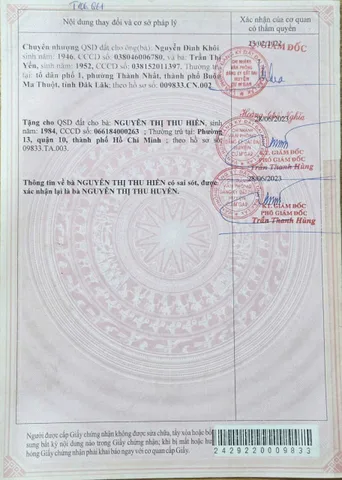 Nội dung thay đổi và cơ sở pháp lý
Xác nhận của cơ quan
có thẩm quyền
Chuyển nhượng QSD đất cho ông(bà): Nguyễn Đình Khôi
sinh năm: 1946, CCCD số: 038046006780, và bà: Trần Thị
Yến, sinh năm: 1952, CCCD số: 038152011397. Thường trú
tại: tổ dân phố 1, phường Thành Nhất, thành phố Buôn
Ma Thuột, tỉnh Đắk Lắk; theo hồ sơ số: 009833.CN.002
GIÁM ĐỐC
Tặng cho QSD đất cho bà: NGUYỄN THỊ THU HIỀN, sinh
năm: 1984, CCCD số: 066184000263 ; Thường trú tại: Phường
13, quận 10, thành phố Hồ Chí Minh ; theo hồ sơ số:
09833.TA.003.
KT. GIÁM ĐỐC
PHÓ GIÁM ĐỐC
Trần Thanh Hùng
Thông tin về bà NGUYỄN THỊ THU HIỀN có sai sót, được
xác nhận lại là bà NGUYỄN THỊ THU HUYỀN.
28/06/2023
KT. GIÁM ĐỐC
PHÓ GIÁM ĐỐC
Trần Thanh Hùng
Người được cấp Giấy chứng nhận không được sửa chữa, tẩy xóa hoặc bổ
sung bất kỳ nội dung nào trong Giấy chứng nhận; khi bị mất hoặc hư
hỏng Giấy chứng nhận phải khai báo ngay với cơ quan cấp Giấy.
2429220009833